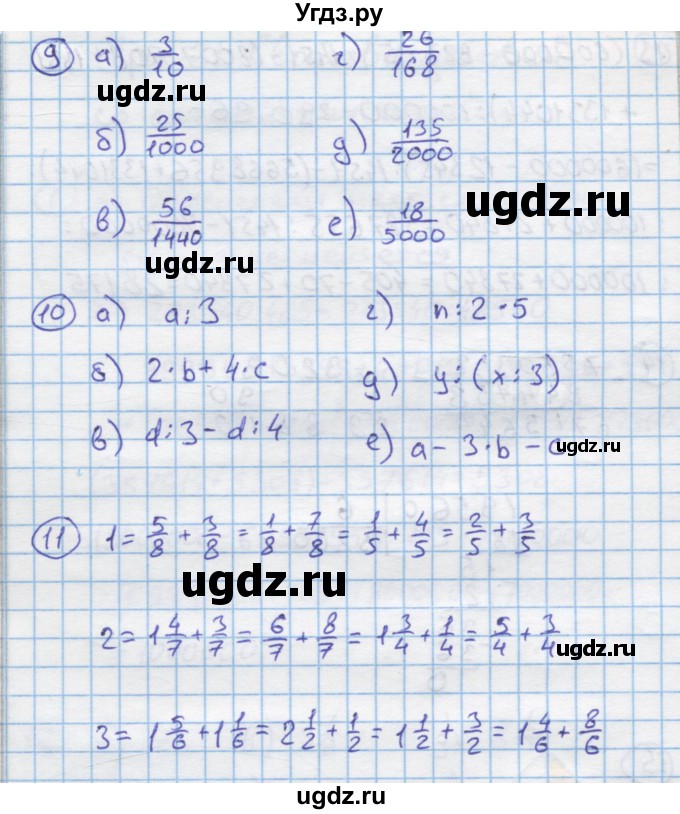 Угдз.ру
9 а) 3/10 г) 26/168
ugdz.ru
б) 25/1000 д) 135/2000
ugdz.ru
в) 56/1440 е) 18/5000
ugdz.ru
10 а) a:3 г) n:2·5
б) 2·b+4·c д) y:(x:3)
в) d:3-d:4 е) a-3·b-c
ugdz.ru
11 1=5/8+3/8=1/8+7/8=1/5+4/5=2/5+3/5
ugdz.ru
2=1 4/7+3/7=6/7+8/7=1 3/4+1/4=5/4+3/4
ugdz.ru
3=1 5/6+1 1/6=2 1/2+1/2=1 1/2+3/2=1 4/6+8/6
ugdz.ru